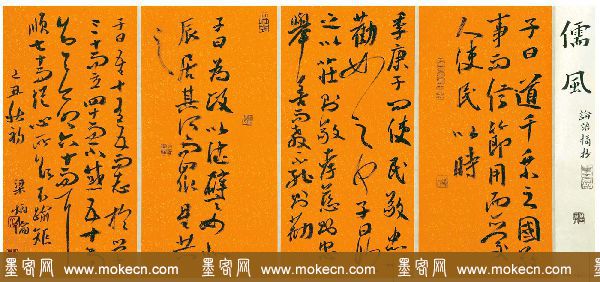 儒風
論語摘抄
子曰道千乘之國敬
事而信節用而愛
人使民以時
季康子問使民敬忠
勸如之何子曰臨
之以莊則敬孝慈則忠
舉善而教不能則勸
子曰為政以德譬如北
辰居其所而眾星共
之
子曰吾十有五而志於學
三十而立四十而不惑五十而
知天命六十而耳
順七十而從心所欲不踰矩
己丑秋
墨客网 www.mokecn.com 墨客网 www.mokecn.com 墨客网 www.mokecn.com 墨客网